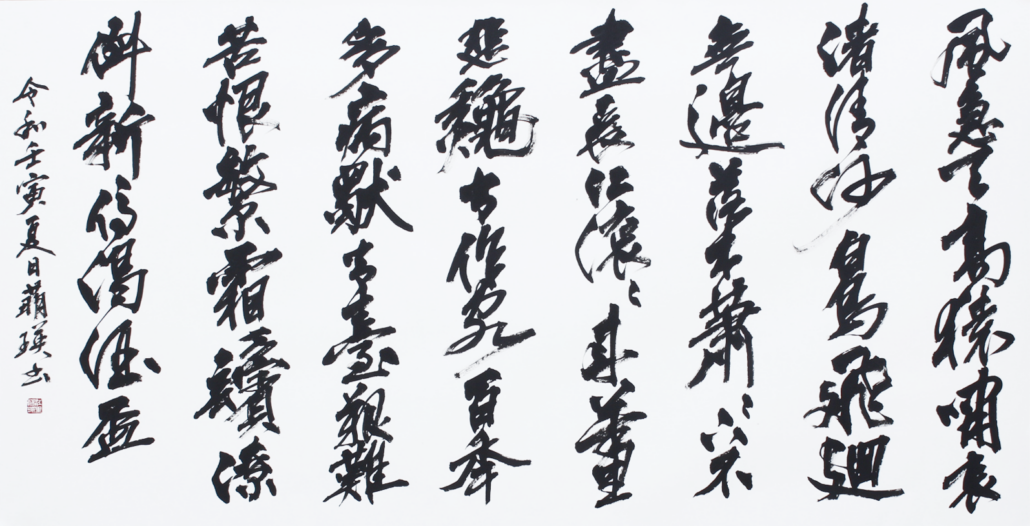 風急天高猿嘯哀
渚清沙白鳥飛廻
無邊落木蕭〻下不
盡長江滾〻来萬里
悲龝常作客百年
多病獨登臺艱難
苦恨繁霜鬢潦
倒新停濁酒盃
令和壬寅夏日萠瑛書